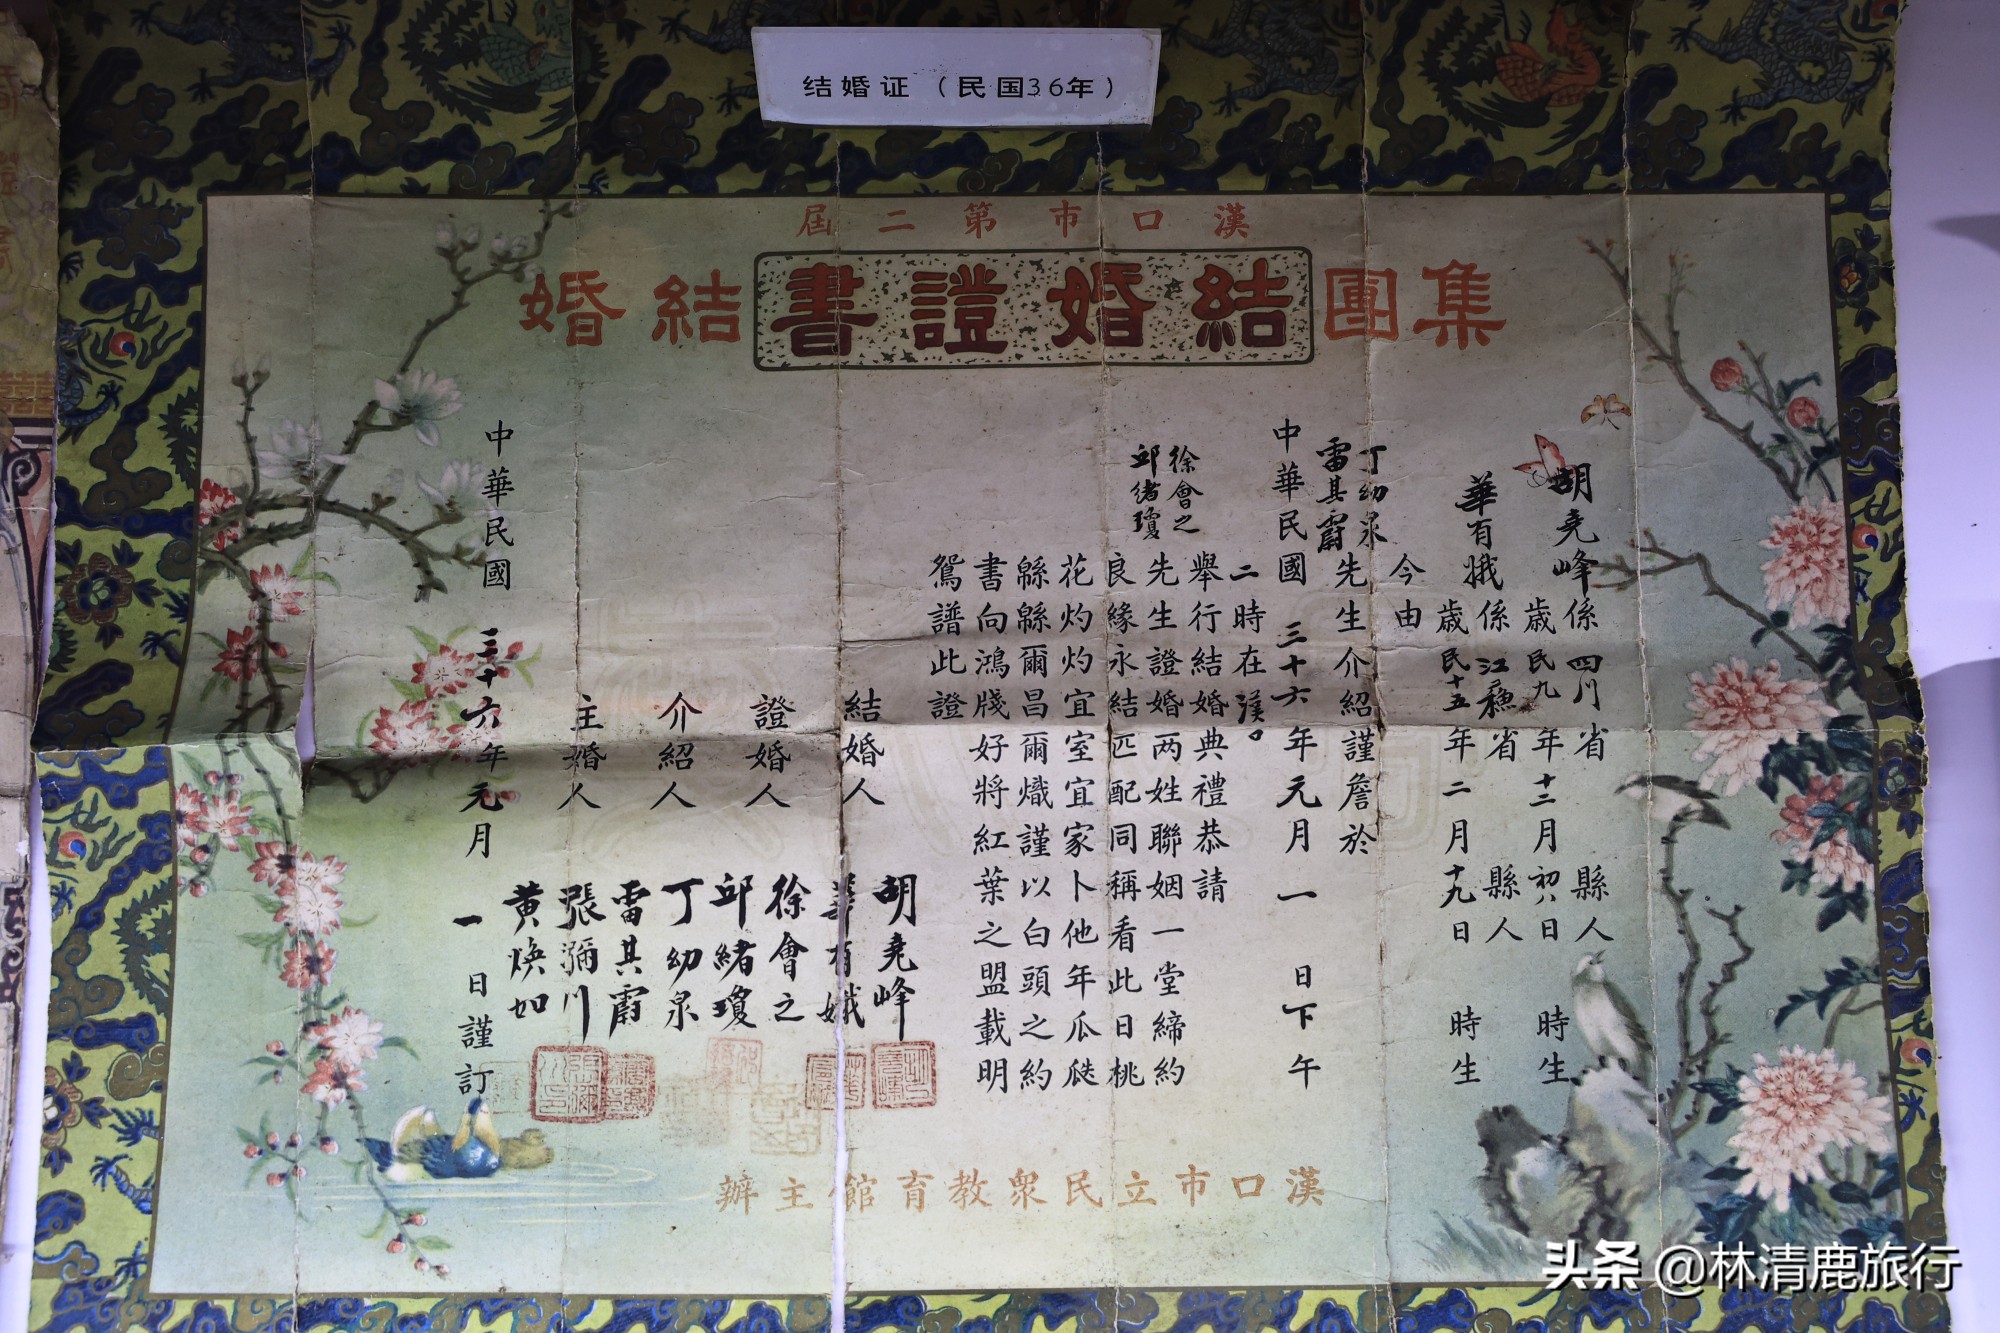 结婚证（民国36年）
漢口市第二屆
集團結婚證書結婚
胡堯峰係四川省縣人
歲民九年十二月初八日時生
華有娥係江蘇省縣人
歲民十五年二月十九日時生
今由
丁幼泉
雷其霨
先生介紹謹詹於
中華民國三十六年元月一日下午
二時在漢口
舉行結婚典禮恭請
徐會之
邱緒瓊
先生證婚两姓聯姻一堂締約
良緣永結匹配同稱看此日桃
花灼灼宜室宜家卜他年瓜瓞
緜緜爾昌爾熾謹以白頭之約
書向鴻牋好將紅葉之盟載明
鴛譜此證
結婚人
胡堯峰
華有娥
證婚人
徐會之
邱緒瓊
介紹人
丁幼泉
雷其霨
主婚人
張彌川
黃煥如
中華民國三十六年元月一日謹訂
漢口市立民眾教育館主辦
头条@林清鹿旅行